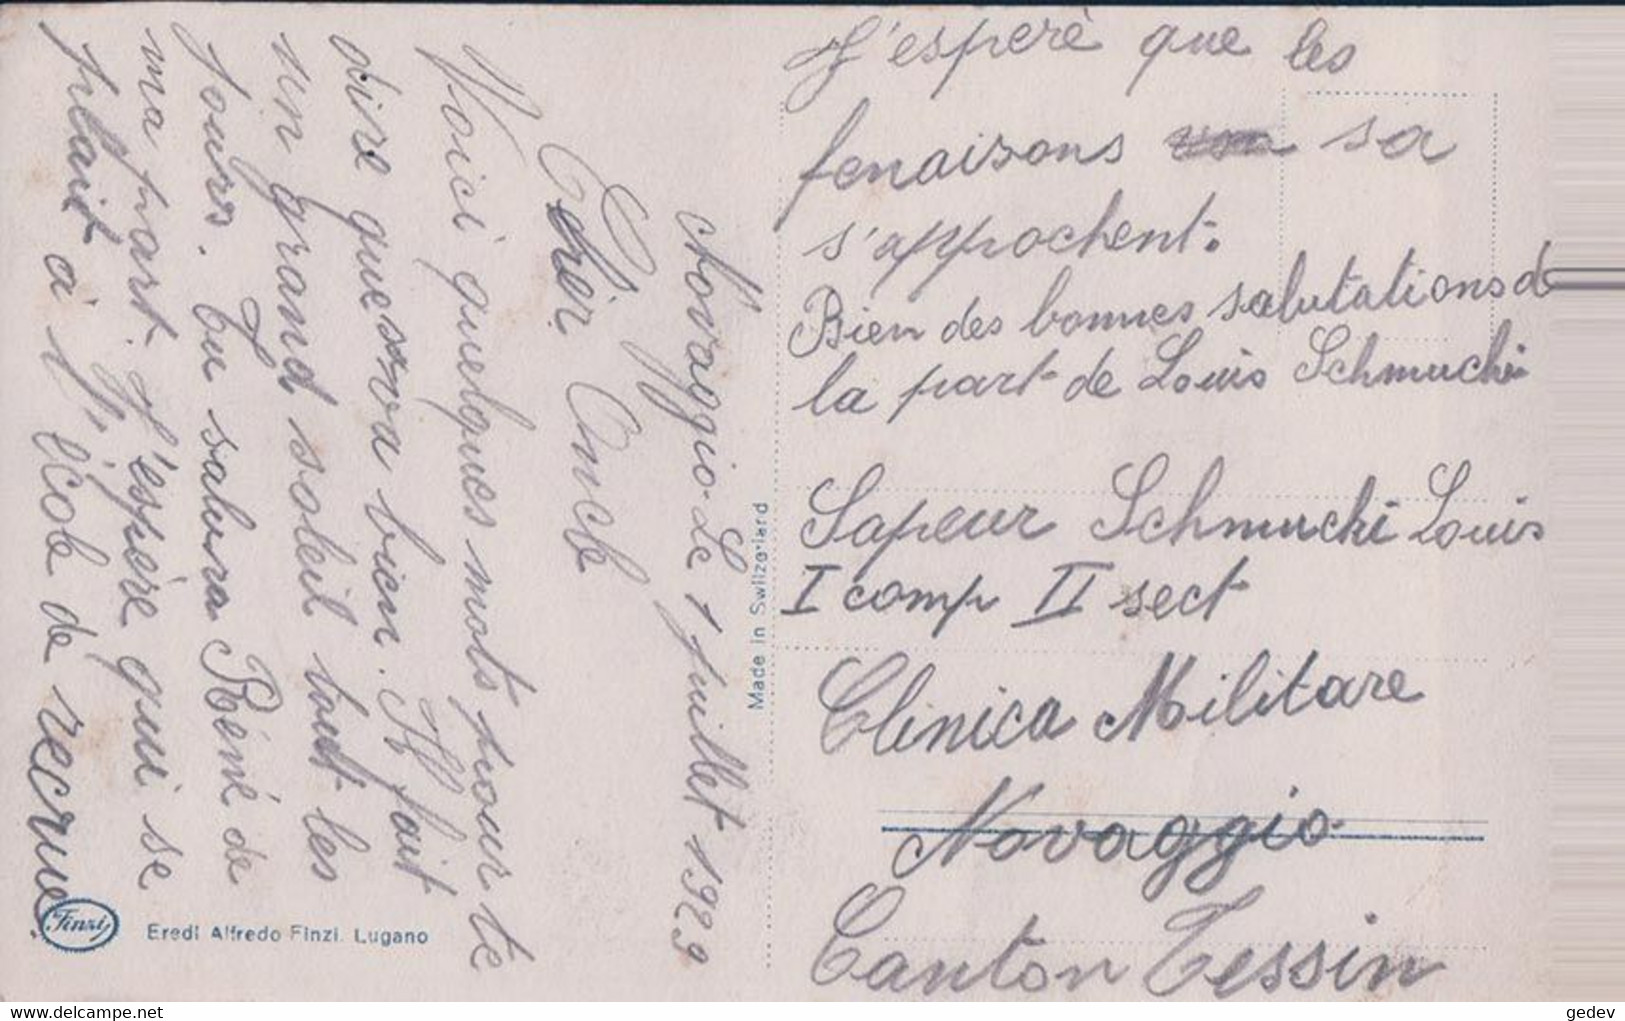 Novaggio. Le 1 juillet 1929
Cher Oncle
Voici quelques mots pour te
dire que sa va bien. Il fait
un grand soleil tout les
jours. Tu salura Réné de
ma part. J'espère qui se
plait à l'école de recrue
J'esperè que les
fenaisons sa
s'approchent.
Bien des bonnes salutations de
la part de Louis Schmucki
Sapeur Schmucki Louis
I comp II sect
Clinica Militare
Novaggio.
Canton Tessin
Made in Switzerland
Finzi
Eredi Alfredo Finzi. Lugano
gedev